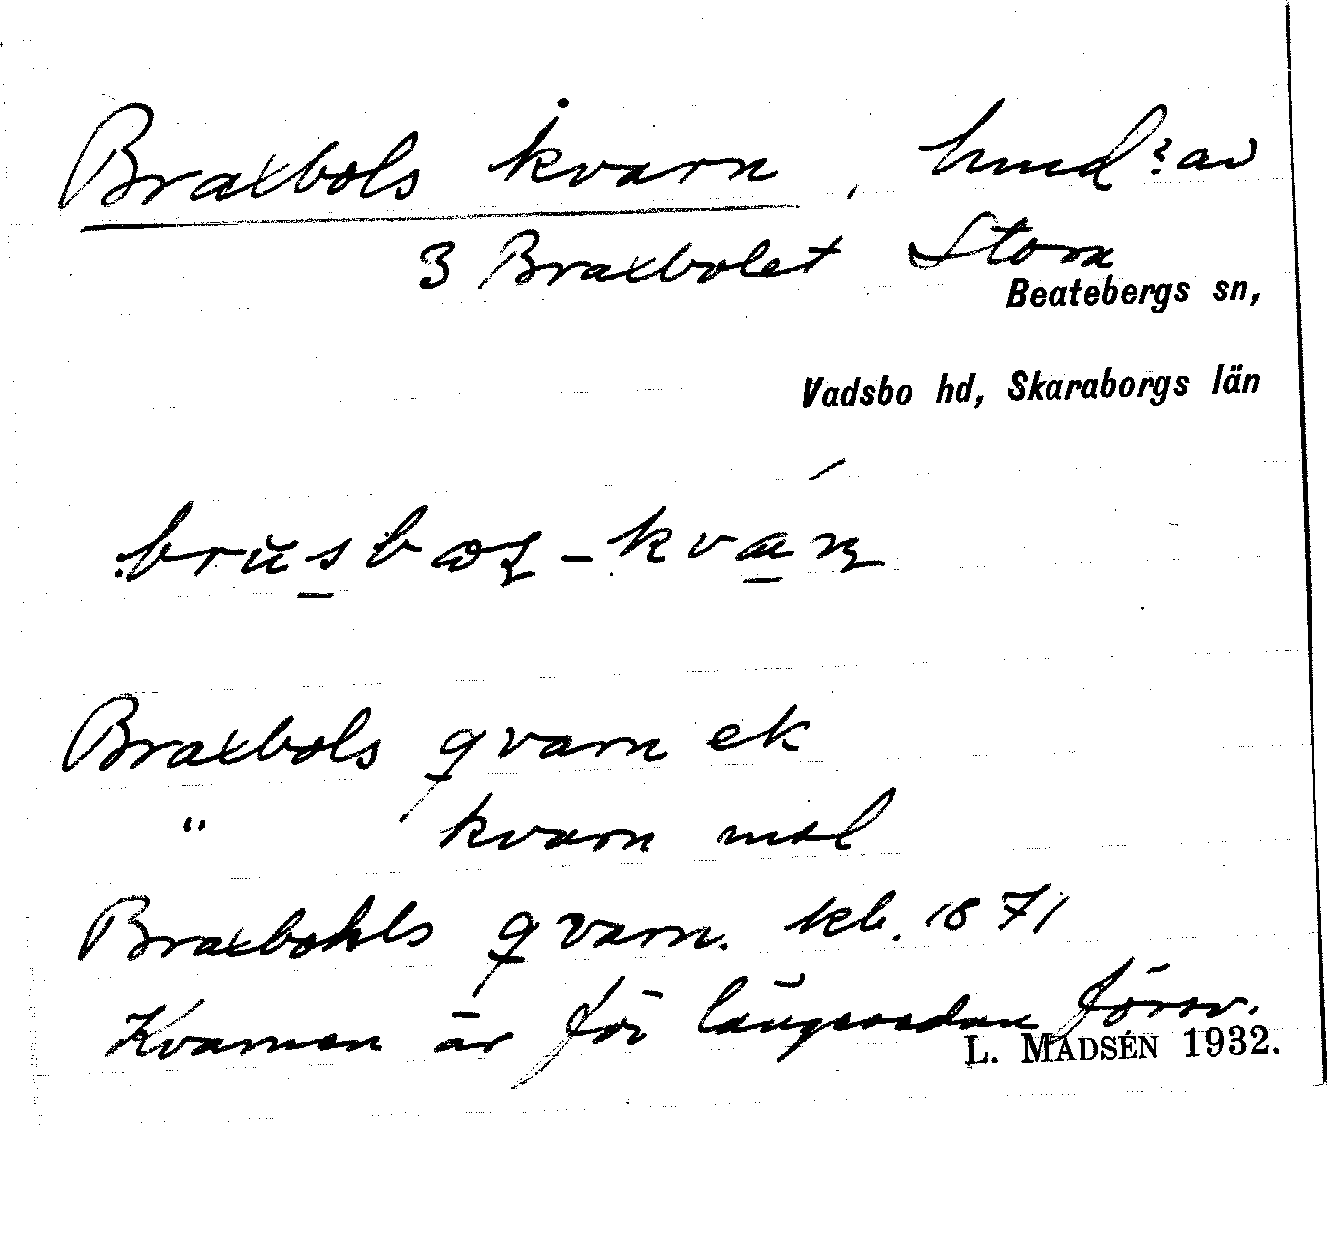 Braxbols kvarn, hmd? av
3 Braxbolet Stora
Beatebergs sn,
Vadsbo hd, Skaraborgs län
Braxbols qvarn ek
" kvarn
Braxbohls qvarn. kb. 1871
Kvarnen är för längesedan försv.
L. MADSÉN 1932.